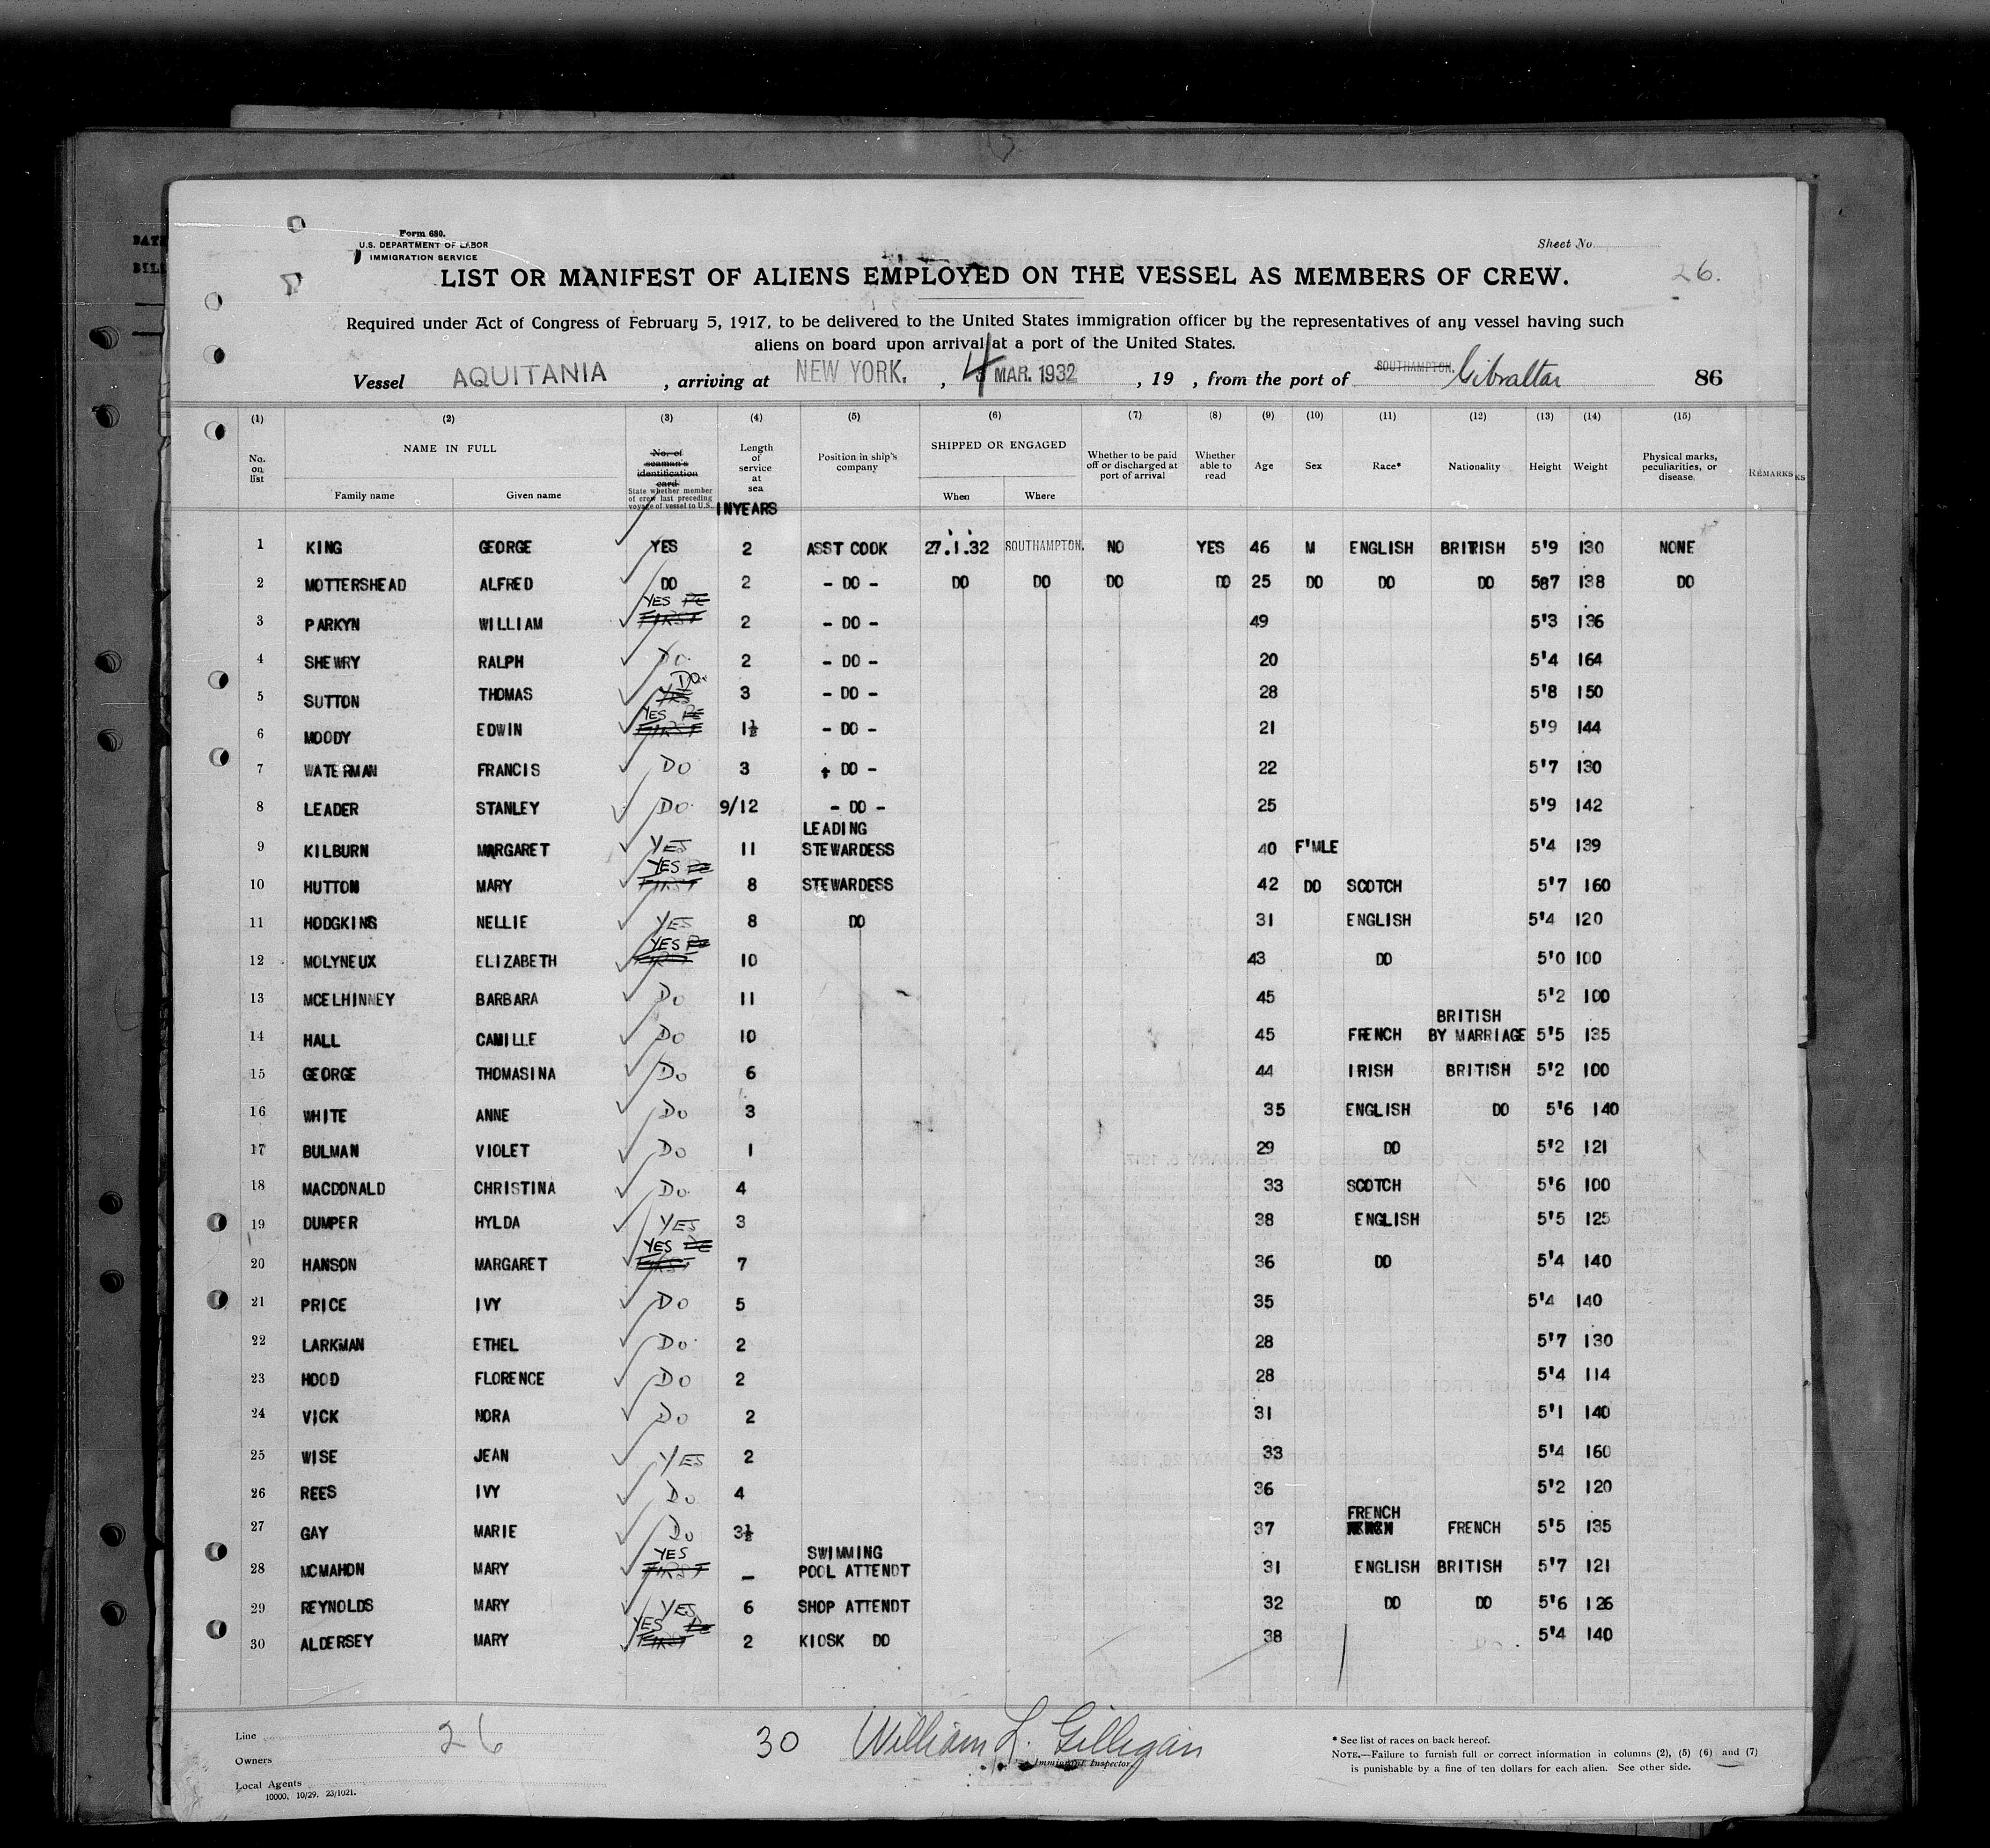 Form 680.
U.S. DEPARTMENT OF LABOR
IMMIGRATION SERVICE
Sheet No.
LIST OR MANIFEST OF ALIENS EMPLOYED ON THE VESSEL AS MEMBERS OF CREW.
26.
Required under Act of Congress of February 5, 1917, to be delivered to the United States immigration officer by the representatives of any vessel having such
aliens on board upon arrival at a port of the United States.
Vessel AQUITANIA, arriving at NEW YORK., 4 MAR. 1932, 19 , from the port of SOUTHAMPTON. Gibraltar 86
(1) (2) (3) (4) (5) (6) (7) (8) (9) (10) (11) (12) (13) (14) (15)
No. on list
NAME IN FULL
Family name Given name
No. of seaman's identification card
State whether member of crew last preceding voyage of vessel to U.S.
Length of service at sea
IN YEARS
Position in ship's company
SHIPPED OR ENGAGED
When Where
Whether to be paid off or discharged at port of arrival
Whether able to read
Age Sex Race* Nationality Height Weight
Physical marks, peculiarities, or disease
REMARKS
1 KING GEORGE YES 2 ASST COOK 27.1.32 SOUTHAMPTON. NO YES 46 M ENGLISH BRITISH 5'9 130 NONE
2 MOTTERSHEAD ALFRED DO 2 - DO - DO DO DO DO 25 DO DO DO 587 138 DO
3 PARKYN WILLIAM YES DO FIRST 2 - DO - 49 5'3 136
4 SHEWRY RALPH Do 2 - DO - 20 5'4 164
5 SUTTON THOMAS DO YES 3 - DO - 28 5'8 150
6 MOODY EDWIN YES FIRST 1½ - DO - 21 5'9 144
7 WATERMAN FRANCIS DO 3 - DO - 22 5'7 130
8 LEADER STANLEY DO 9/12 - DO - 25 5'9 142
9 KILBURN MARGARET YES 11 LEADING STEWARDESS 40 F'MLE 5'4 139
10 HUTTON MARY YES FIRST 8 STEWARDESS 42 DO SCOTCH 5'7 160
11 HODGKINS NELLIE YES 8 DO 31 ENGLISH 5'4 120
12 MOLYNEUX ELIZABETH YES FIRST 10 43 DO 5'0 100
13 MCELHINNEY BARBARA Do 11 45 5'2 100
14 HALL CAMILLE Do 10 45 FRENCH BRITISH BY MARRIAGE 5'5 135
15 GEORGE THOMASINA Do 6 44 IRISH BRITISH 5'2 100
16 WHITE ANNE Do 3 35 ENGLISH DO 5'6 140
17 BULMAN VIOLET Do 1 29 DO 5'2 121
18 MACDONALD CHRISTINA Do 4 33 SCOTCH 5'6 100
19 DUMPER HYLDA YES 3 38 ENGLISH 5'5 125
20 HANSON MARGARET YES FIRST 7 36 DO 5'4 140
21 PRICE IVY Do 5 35 5'4 140
22 LARKMAN ETHEL Do 2 28 5'7 130
23 HOOD FLORENCE Do 2 28 5'4 114
24 VICK NORA Do 2 31 5'1 140
25 WISE JEAN YES 2 33 5'4 160
26 REES IVY Do 4 36 5'2 120
27 GAY MARIE Do 3½ 37 FRENCH FRENCH 5'5 135
28 MCMAHON MARY YES FIRST - SWIMMING POOL ATTENDT 31 ENGLISH BRITISH 5'7 121
29 REYNOLDS MARY YES 6 SHOP ATTENDT 32 DO DO 5'6 126
30 ALDERSEY MARY YES FIRST 2 KIOSK DO 38 5'4 140
Line 26 30 William L. Gilligan
Immigrant Inspector.
Owners
Local Agents
10000, 10/29. 23/1021.
* See list of races on back hereof.
NOTE.—Failure to furnish full or correct information in columns (2), (5) (6) and (7)
is punishable by a fine of ten dollars for each alien. See other side.